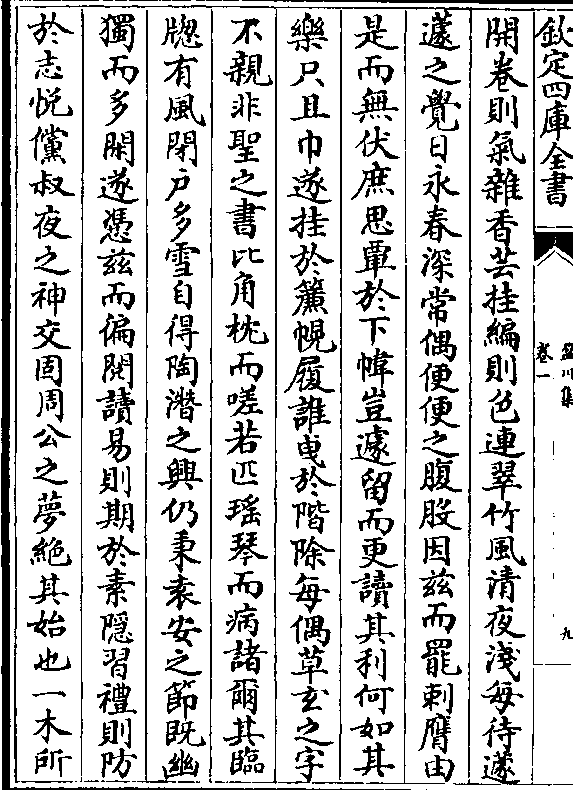 欽定四庫全書
盈川集
卷一
九
開卷則氣雜香芸挂編則色連翠竹風清夜淺每待遽
蘧之覺日永春深常偶便便之腹股因兹而罷刺膺由
是而無伏庶思覃於下幃豈遽留而更讀其利何如其
樂只且巾遂挂於簾幌履誰曳於階除每偶草玄之字
不親非聖之書比角枕而嗟若匹瑶琴而病諸爾其臨
牕有風閉户多雪自得陶潛之興仍秉袁安之節既幽
獨而多閑遂憑兹而偏閱讀易則期於素隱習禮則防
於志悦儻叔夜之神交固周公之夢絶其始也一木所